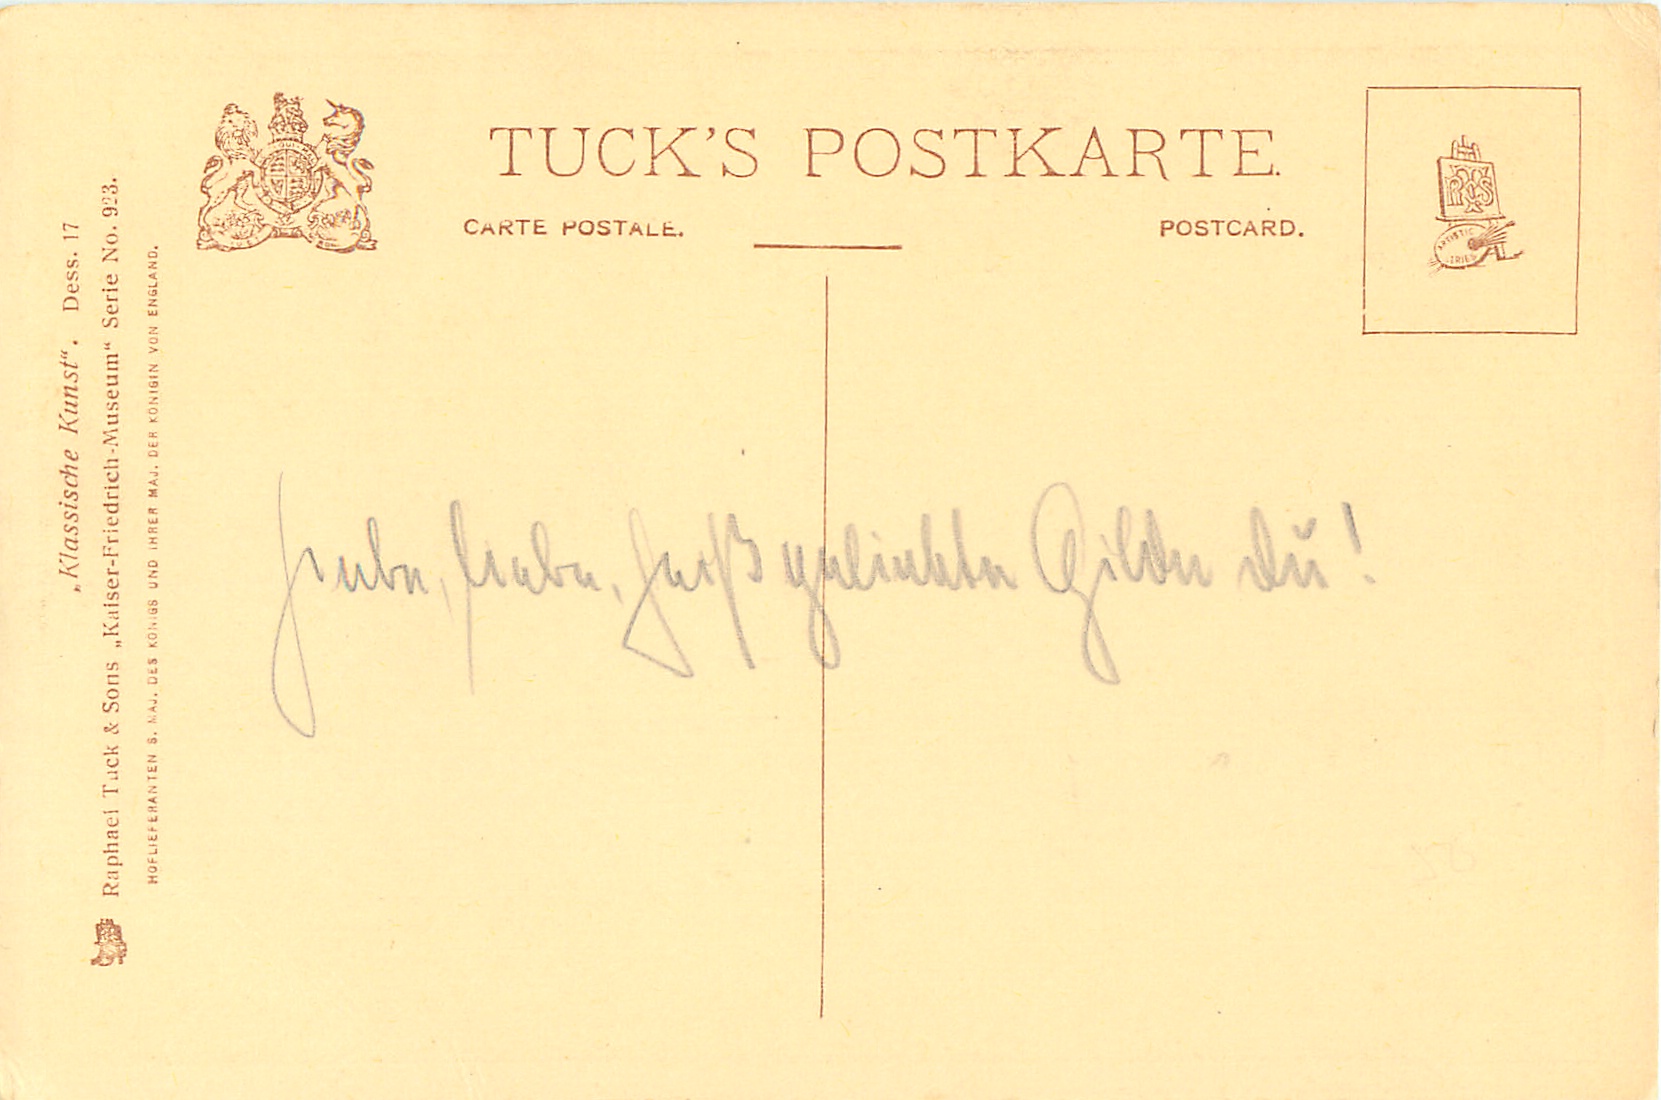 TUCK'S POSTKARTE.
CARTE POSTALE.
POSTCARD.
ARTISTIC SERIES
„Klassische Kunst“. Dess. 17
Raphael Tuck & Sons „Kaiser-Friedrich-Museum“ Serie No. 923.
HOFLIEFERANTEN S. MAJ. DES KÖNIGS UND IHRER MAJ. DER KÖNIGIN VON ENGLAND.
Liebe, liebe, heiß geliebte Hilde du!